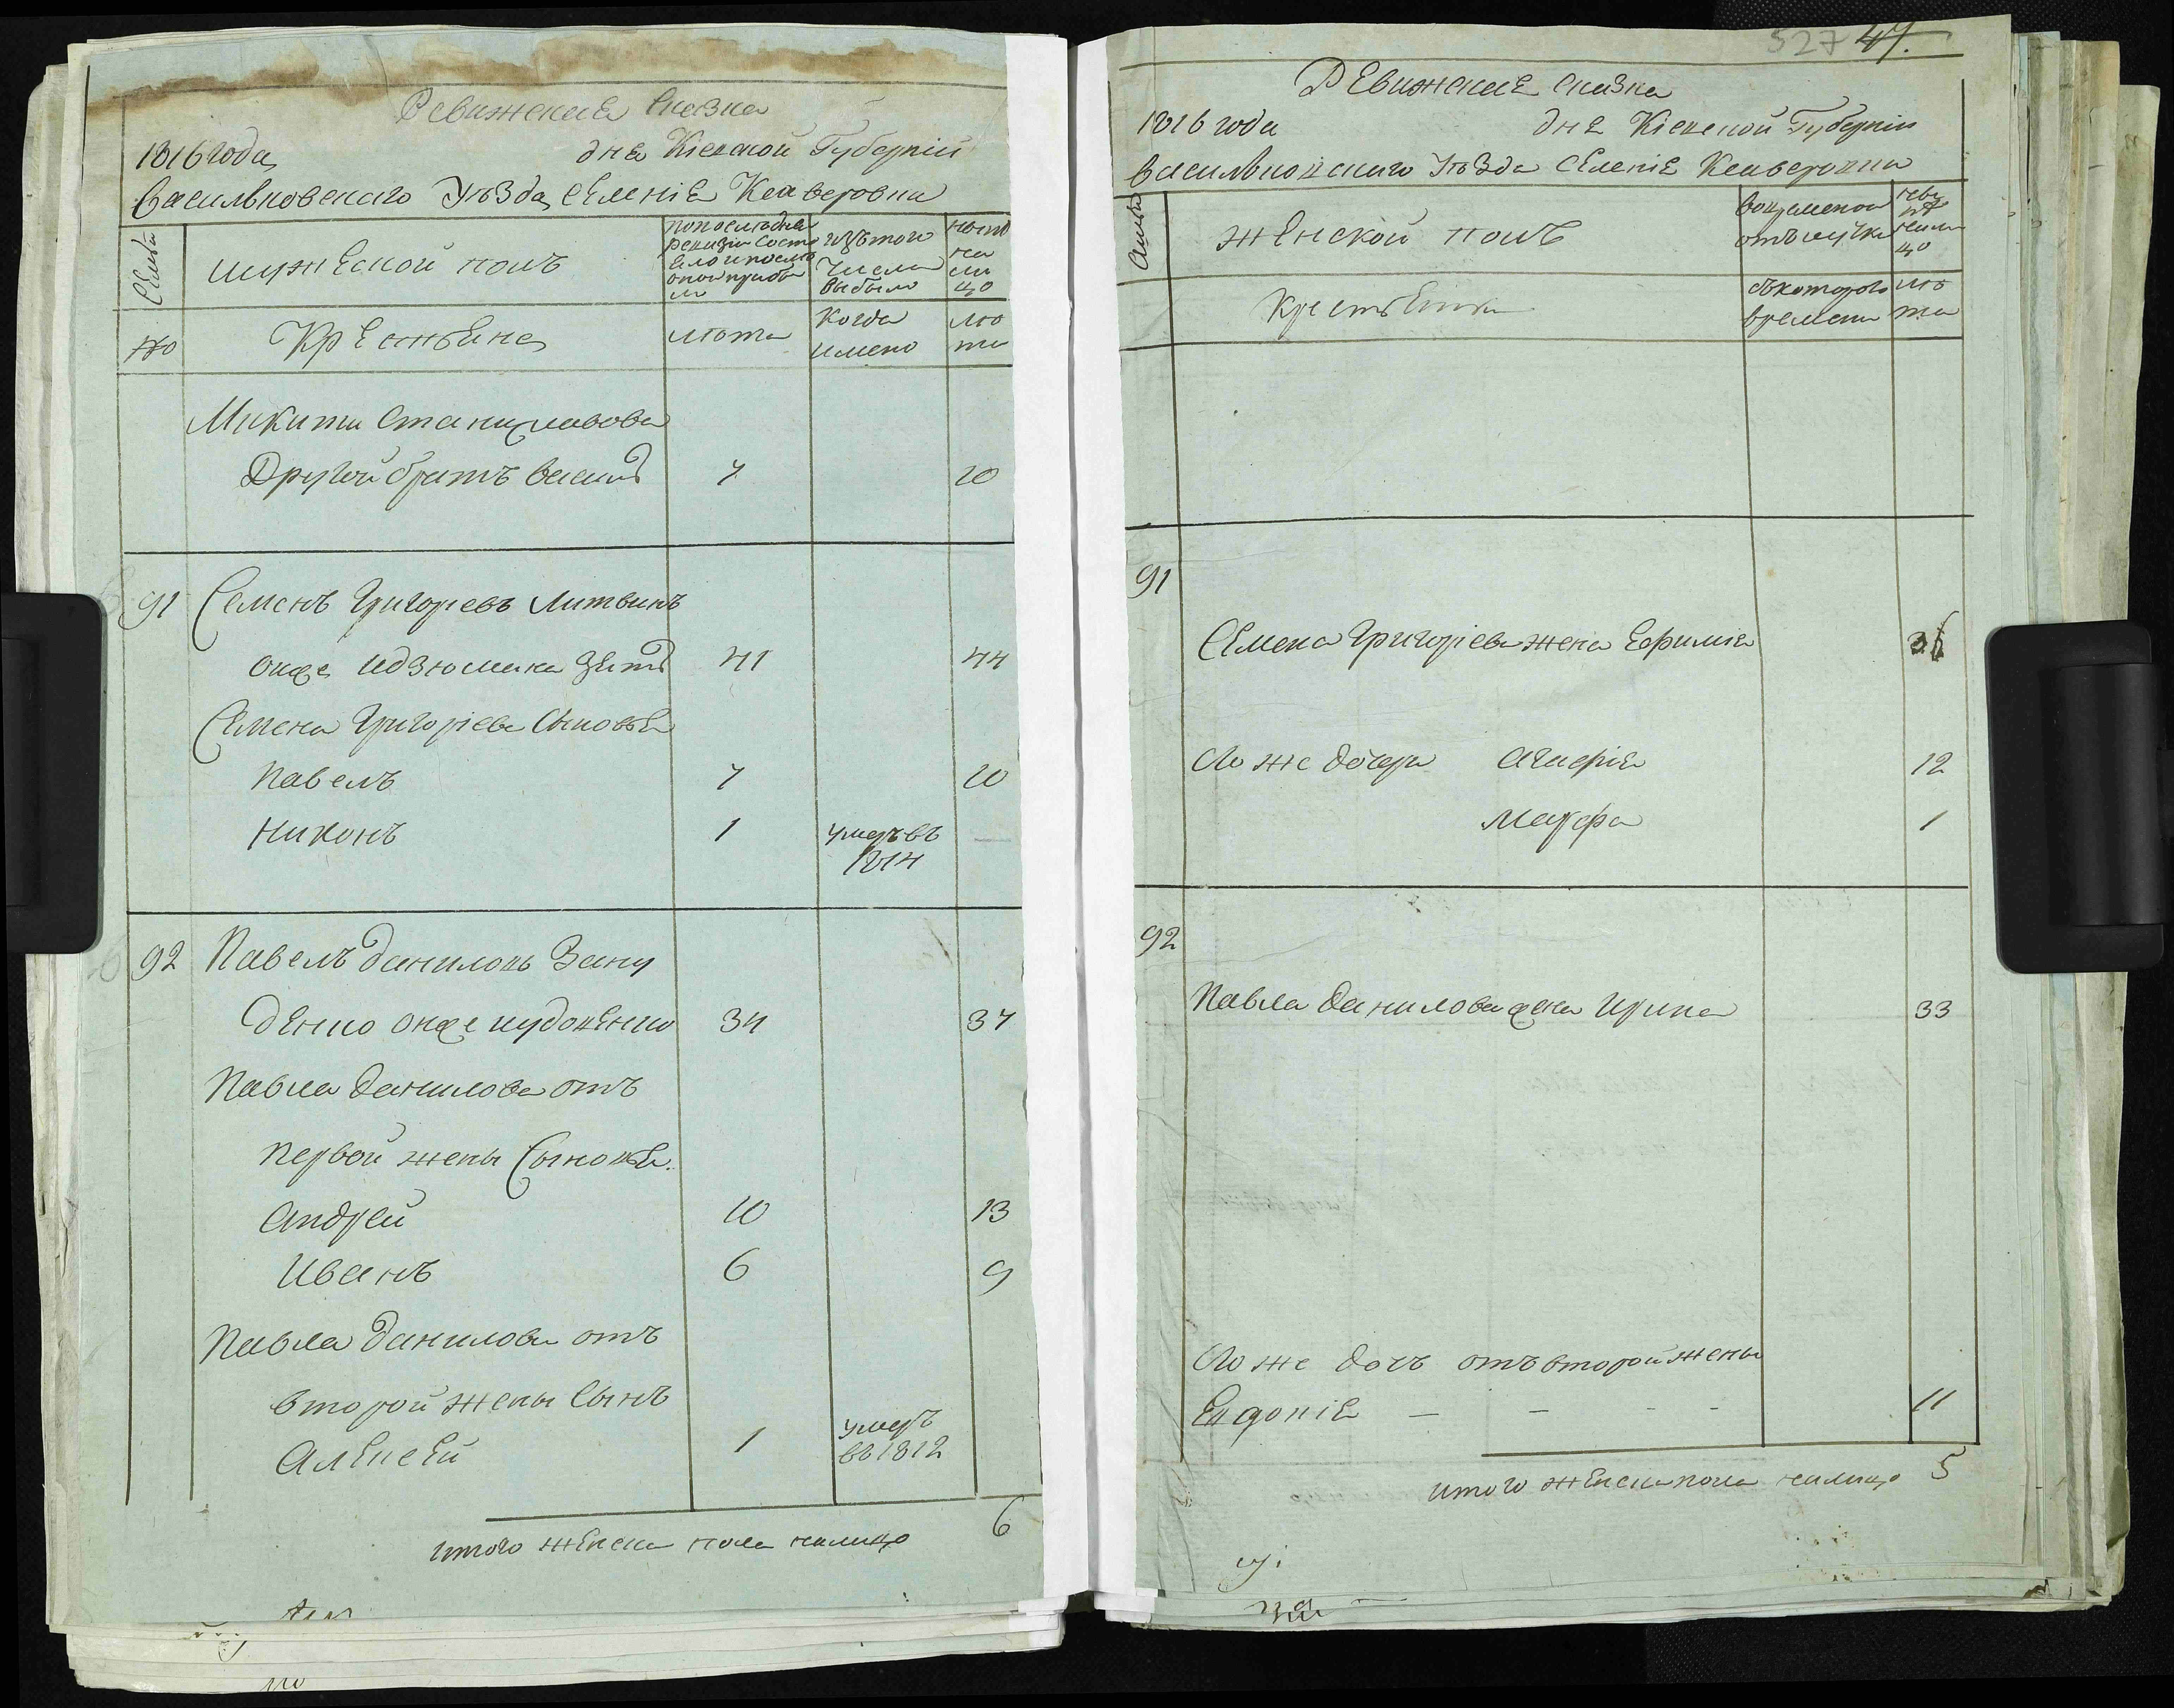 Ревижская Сказка
1816 года дня Кіевской Губерніи
Васильковскаго Уѣзда Селеніе Кеаверовки
Семьи
Мужеской полъ
По последней ревизіи состояло и после оной прибыло
Изъ того числа выбыло
Ныне на лицо
№
Крестьяне
Лѣта
Когда имено
Лѣта
Микити Станиславова
Другой братъ Василь 7 10
91 Семенъ Григорьевъ Литвинъ
онже зять 41 44
Семена Григоріева Сыновья
Павелъ 7 10
Никонъ 1 умеръ въ 1814 —
92 Павелъ Даниловъ Зану
денко онже 34 37
Павла Данилова отъ
первой жены Сыновья.
Андрей 10 13
Иванъ 6 9
Павла Данилова отъ
второй жены Сынъ
Алексей 1 умеръ въ 1812
итого женска пола налицо 6
527 47.
Ревижская сказка
1816 года дня Кіевской Губерніи
Васильковскаго Уѣзда Селеніе Кеаверовки
Семьи
Женской полъ
Во временой отлучке
Ныне налицо
Крестьянки
Съ котораго времени
Лѣта
91
Семена Григоріева жена Ефимія 36
Ево же дочери Агафія 12
Марфа 1
92
Павла Данилова жена Ирина 33
Ево же дочъ отъ второй жены
Евдокія — — - - 11
итого женска пола налицо 5